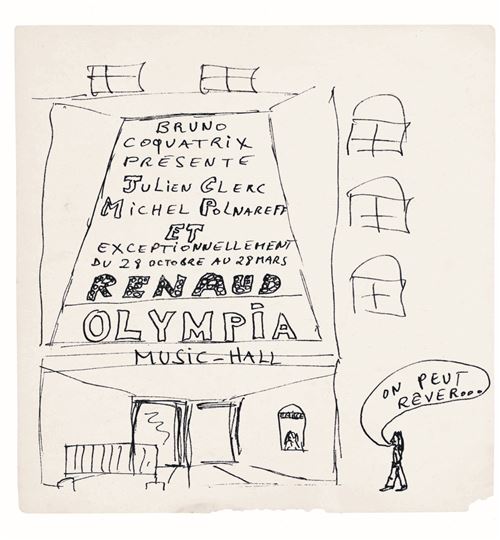 BRUNO
COQUATRIX
PRÉSENTE
JULIEN CLERC
MICHEL POLNAREFF
ET
EXCEPTIONNELLEMENT
DU 28 OCTOBRE AU 28 MARS
RENAUD
OLYMPIA
MUSIC-HALL
ON PEUT
RÊVER...